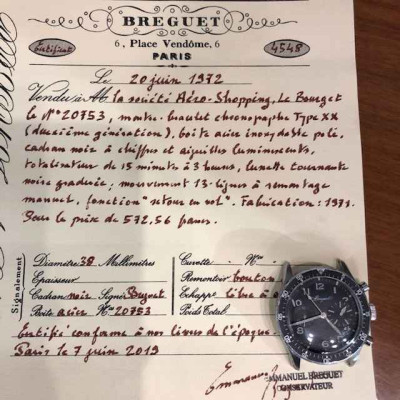 BREGUET
Certificat 6, Place Vendôme, 6 4548
PARIS
Le 20 juin 1972
Vendu à M la société Aéro-Shopping, Le Bourget
le N° 20753, montre-bracelet chronographe Type XX
(deuxième génération), boîte acier inoxydable poli,
cadran noir à chiffres et aiguilles luminescents,
totalisateur de 15 minutes à 3 heures, lunette tournante
noire graduée, mouvement 13-lignes à remontage
manuel, fonction "retour en vol". Fabrication: 1971.
Pour le prix de 572,56 francs.
Signalement
Diamètre 38 Millimètres
Epaisseur
Cadran noir Signé Breguet
Boîte acier N° 20753
Cuvette N°
Remontoir bouton
Echappt libre à
Poids Total
Certifié conforme à nos livres de l'époque.
Paris le 7 juin 2019
EMMANUEL BREGUET
CONSERVATEUR
Breguet